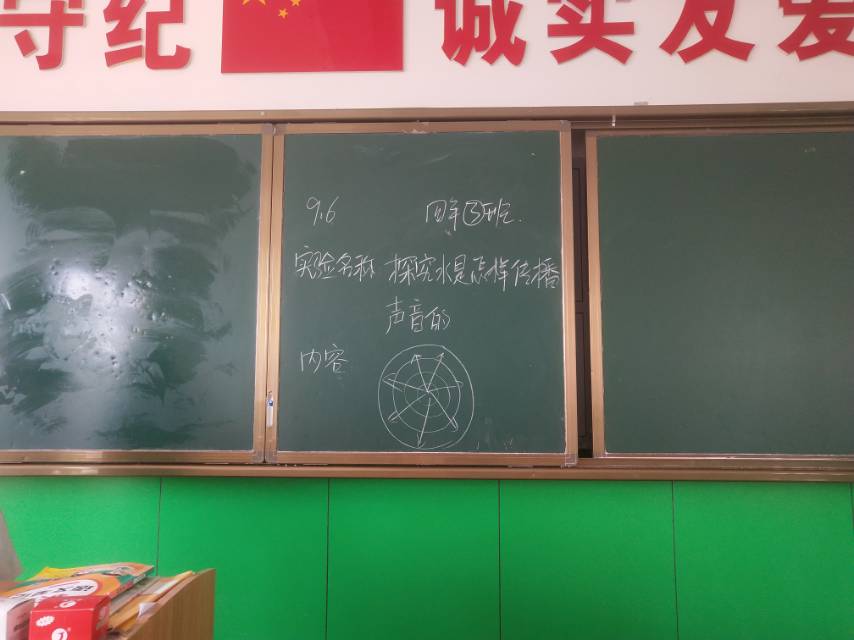 守纪 诚实友爱
9.6 四年③班.
实验名称 探究水是怎样传播
声音的
内容